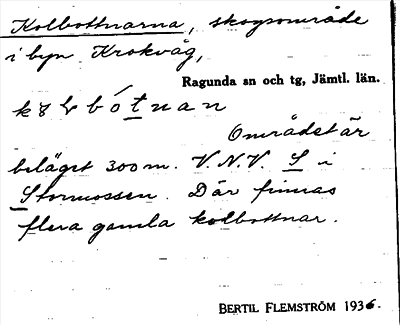 Kolbottnarna, skogsområde
i byn Krokvåg,
Ragunda sn och tg, Jämtl. län.
Området är
beläget 300 m. V.N.V. S i
Stormossen. Där finnas
flera gamla kolbottnar.
BERTIL FLEMSTRÖM 1936.